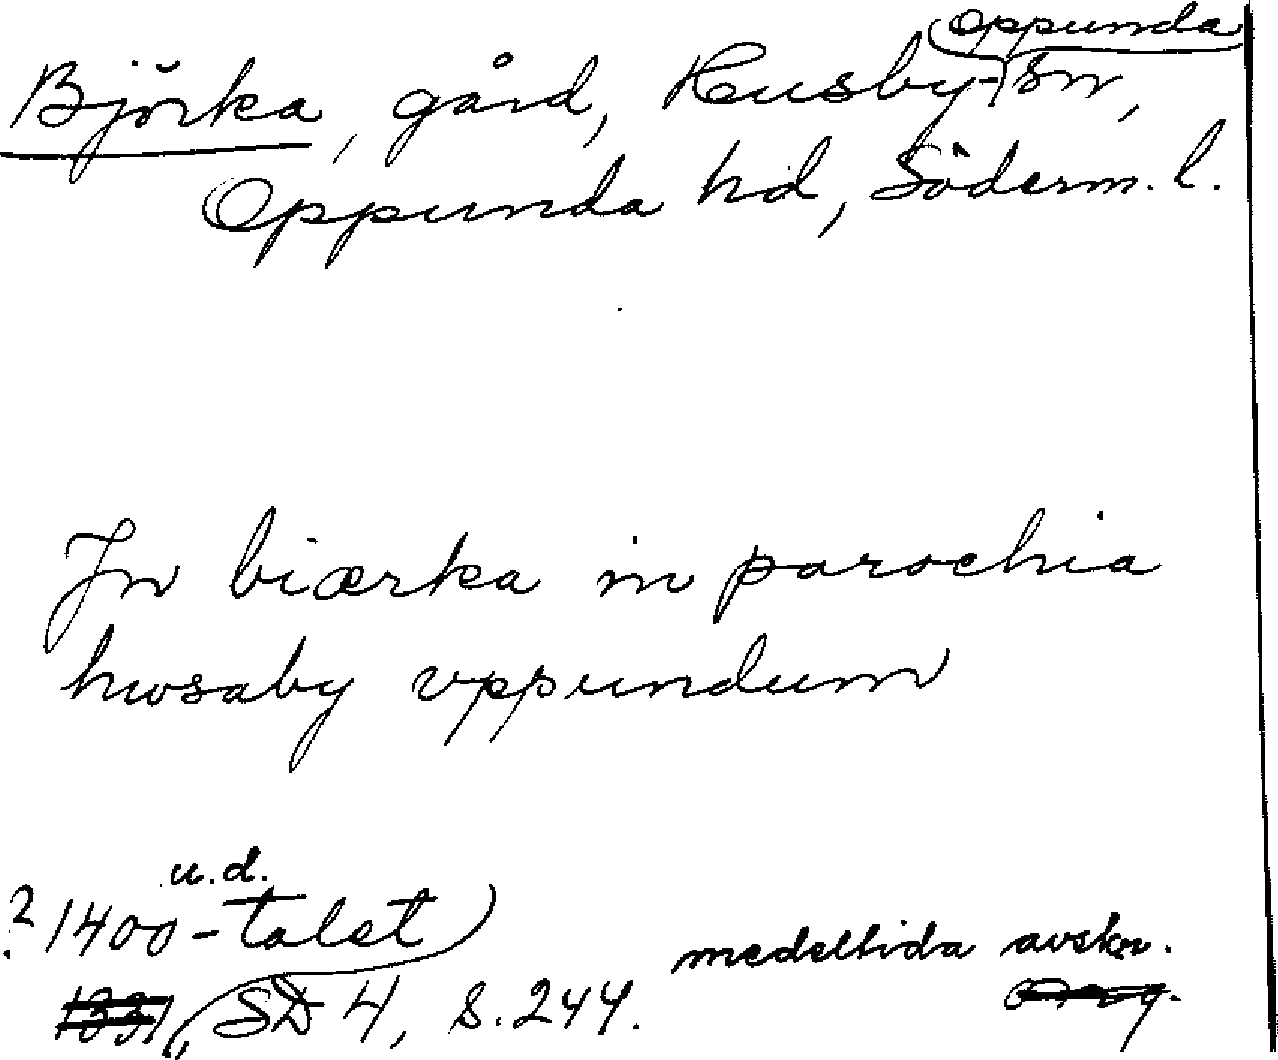 Björka, gård, Husby-Oppunda sn,
Oppunda hd, Söderm. l.
In biærka in parochia
hwsaby vppundum
u.d.
? 1400-talet
1331, SD 4, s. 244.
medeltida avskr.